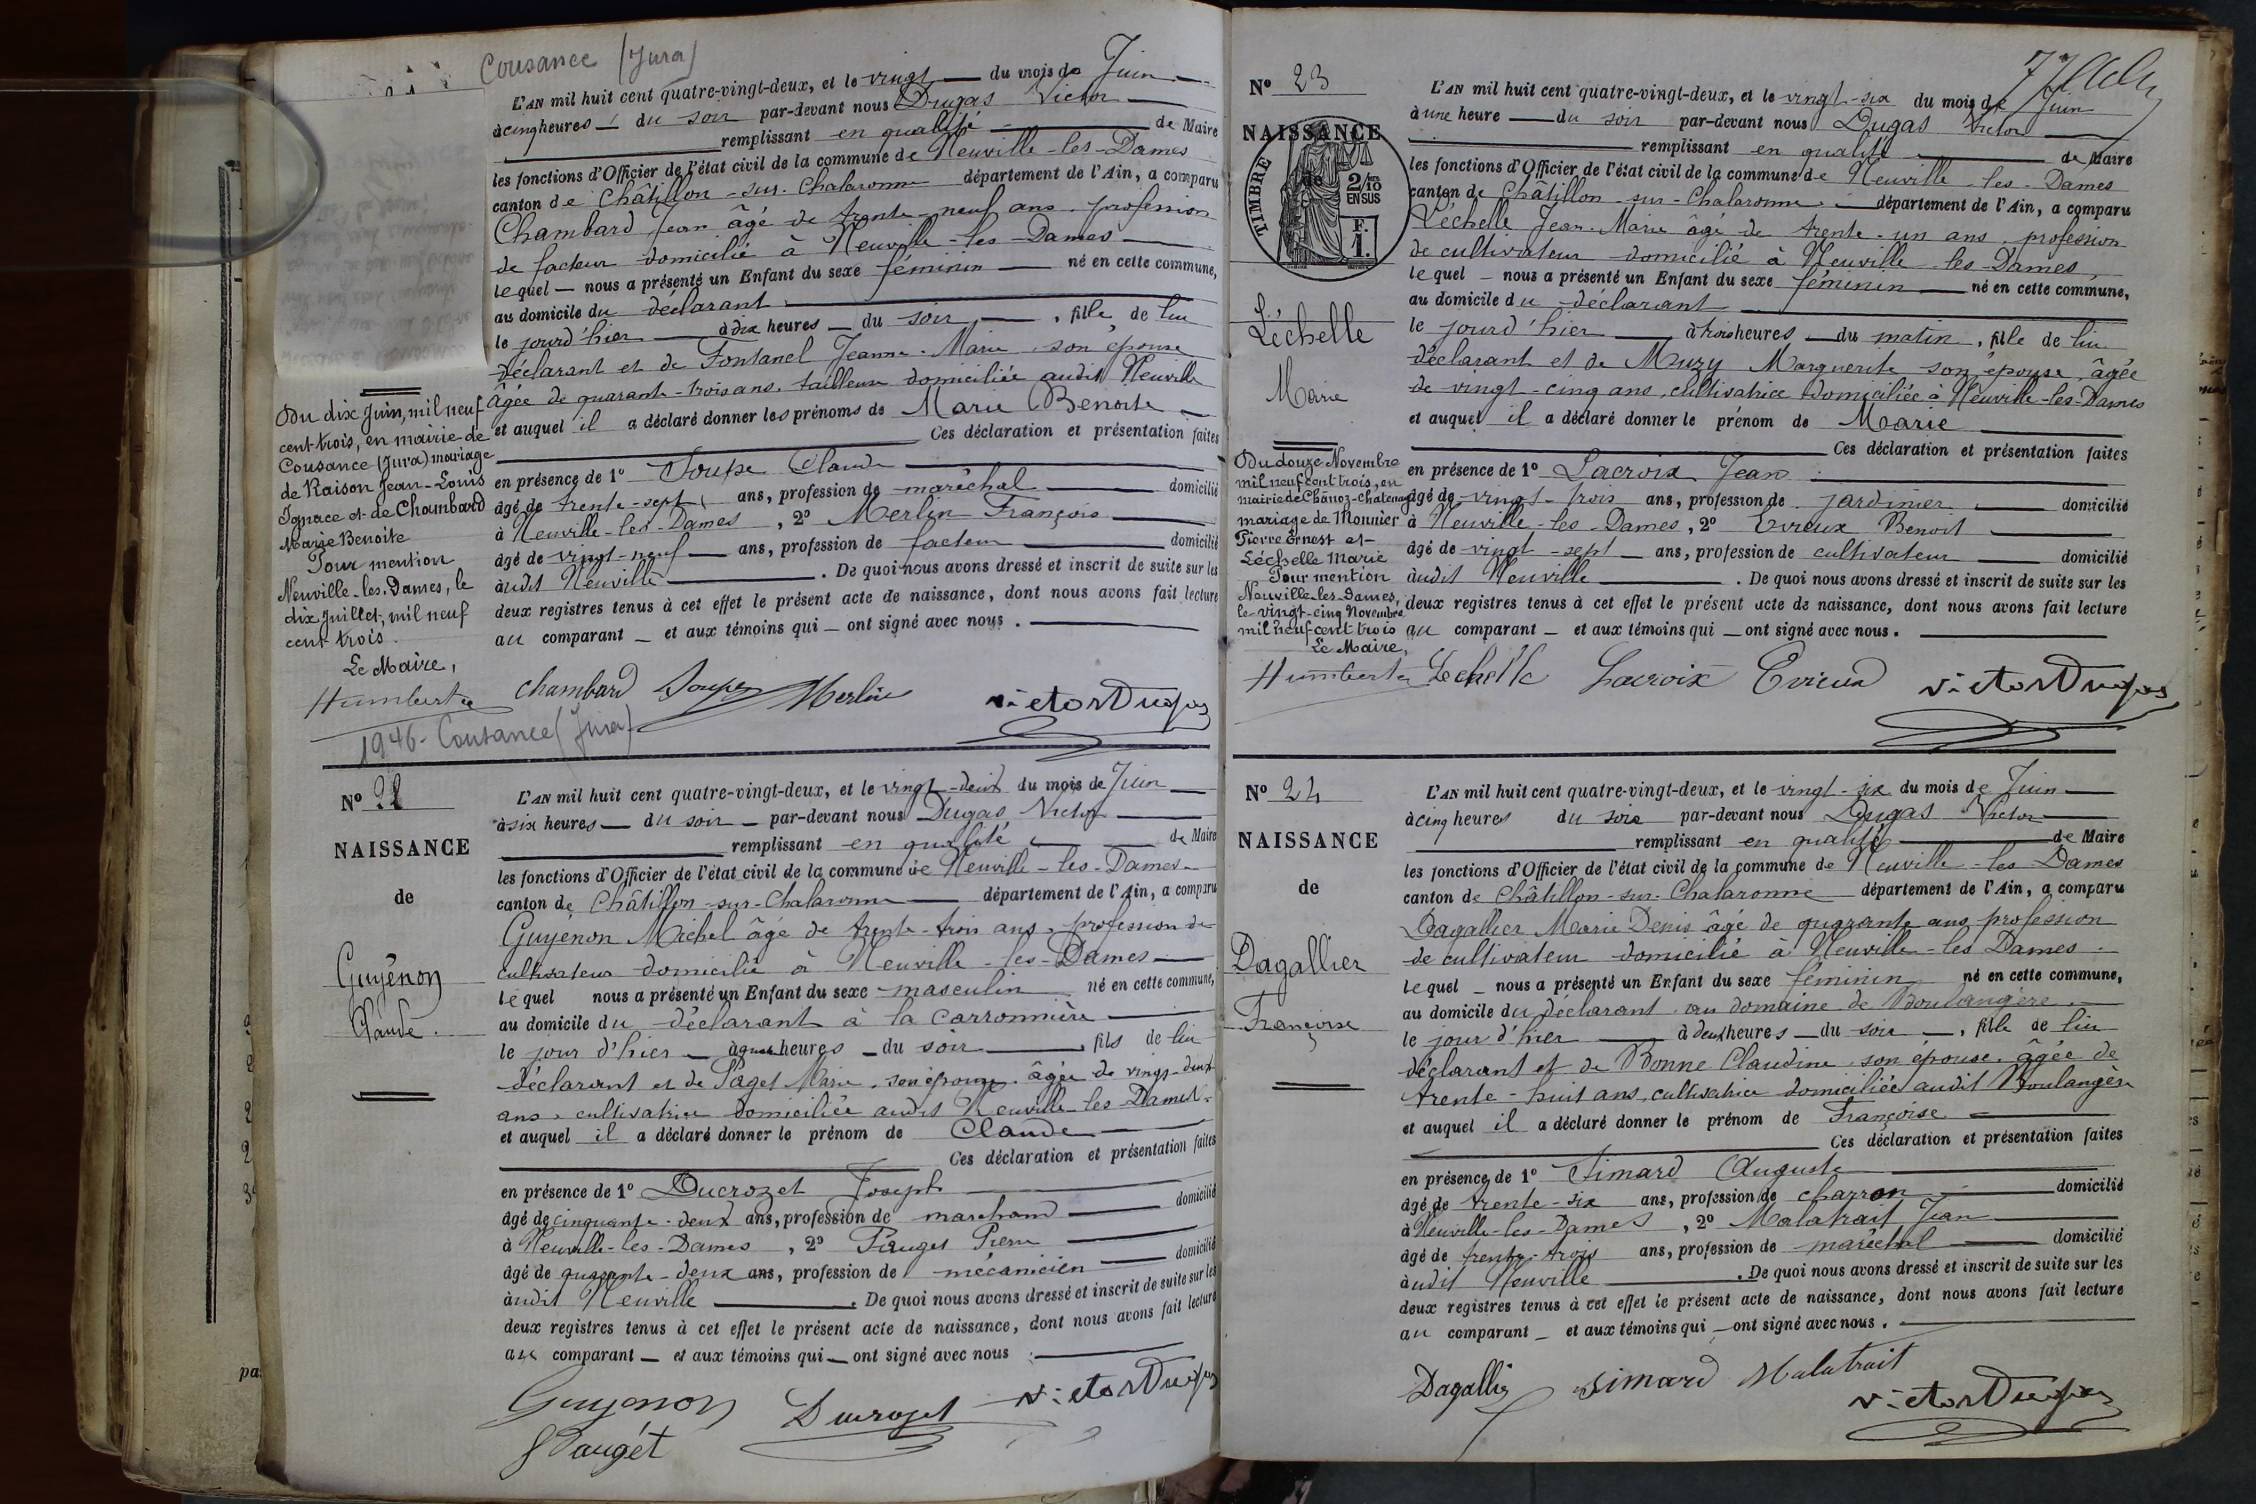 Cousance (Jura)
L'AN mil huit cent quatre-vingt-deux, et le vingt du mois de Juin
à cinq heures du soir par-devant nous Dugas Victor
remplissant en qualité de Maire
les fonctions d'Officier de l'état civil de la commune de Neuville-les-Dames
canton de Châtillon-sur-Chalaronne département de l'Ain, a comparu
Chambard Jean âgé de trente-neuf ans, profession
de facteur domicilié à Neuville-les-Dames
lequel nous a présenté un Enfant du sexe féminin né en cette commune,
au domicile du déclarant
le jourd'hier à dix heures du soir, fille de lui
déclarant et de Fontanel Jeanne-Marie, son épouse
âgée de quarante-trois ans, tailleuse domiciliée audit Neuville
et auquel il a déclaré donner les prénoms de Marie Benoite
Ces déclaration et présentation faites
en présence de 1° Soupe Claude
âgé de trente-sept ans, profession de maréchal domicilié
à Neuville-les-Dames, 2° Merlin François
âgé de vingt-neuf ans, profession de facteur domicilié
audit Neuville. De quoi nous avons dressé et inscrit de suite sur les
deux registres tenus à cet effet le présent acte de naissance, dont nous avons fait lecture
au comparant et aux témoins qui ont signé avec nous.
Du dix Juin, mil neuf
cent trois, en mairie de
Cousance (Jura) mariage
de Raison Jean-Louis
Ignace et de Chambard
Marie Benoite
Pour mention
Neuville-les-Dames, le
dix Juillet, mil neuf
cent trois.
Le Maire,
Humbert
Chambard Soupe Merlin Victor Dugas
1946 - Cousance (Jura)
N° 22
NAISSANCE
de
Guyénon
Claude.
L'AN mil huit cent quatre-vingt-deux, et le vingt-deux du mois de Juin
à six heures du soir par-devant nous Dugas Victor
remplissant en qualité de Maire
les fonctions d'Officier de l'état civil de la commune de Neuville-les-Dames
canton de Châtillon-sur-Chalaronne département de l'Ain, a comparu
Guyénon Michel âgé de trente-trois ans, profession de
cultivateur domicilié à Neuville-les-Dames
lequel nous a présenté un Enfant du sexe masculin né en cette commune,
au domicile du déclarant à la Carronnière
le jour d'hier à quatre heures du soir fils de lui
déclarant et de Paget Marie, son épouse, âgée de vingt-deux
ans, cultivatrice domiciliée audit Neuville-les-Dames.
et auquel il a déclaré donner le prénom de Claude
Ces déclaration et présentation faites
en présence de 1° Ducrozet Joseph
âgé de cinquante-deux ans, profession de marchand domicilié
à Neuville-les-Dames, 2° Pauget Pierre
âgé de quarante-deux ans, profession de mécanicien domicilié
audit Neuville. De quoi nous avons dressé et inscrit de suite sur les
deux registres tenus à cet effet le présent acte de naissance, dont nous avons fait lecture
au comparant et aux témoins qui ont signé avec nous
Guyenon Ducrozet Victor Dugas
Pauget
N° 23
NAISSANCE
TIMBRE
de
2/10 EN SUS
F. 1.
Léchelle
Marie
L'AN mil huit cent quatre-vingt-deux, et le vingt-six du mois de Juin
à une heure du soir par-devant nous Dugas Victor
remplissant en qualité de Maire
les fonctions d'Officier de l'état civil de la commune de Neuville-les-Dames
canton de Châtillon-sur-Chalaronne département de l'Ain, a comparu
Léchelle Jean-Marie âgé de trente-un ans, profession
de cultivateur domicilié à Neuville-les-Dames,
lequel nous a présenté un Enfant du sexe féminin né en cette commune,
au domicile du déclarant
le jourd'hier à trois heures du matin, fille de lui
déclarant et de Muzy Marguerite son épouse, âgée
de vingt-cinq ans, cultivatrice domiciliée à Neuville-les-Dames
et auquel il a déclaré donner le prénom de Marie
Ces déclaration et présentation faites
en présence de 1° Lacroix Jean
âgé de vingt-trois ans, profession de jardinier domicilié
à Neuville-les-Dames, 2° Evieux Benoit
âgé de vingt-sept ans, profession de cultivateur domicilié
audit Neuville. De quoi nous avons dressé et inscrit de suite sur les
deux registres tenus à cet effet le présent acte de naissance, dont nous avons fait lecture
au comparant et aux témoins qui ont signé avec nous.
Du douze Novembre
mil neuf cent trois, en
mairie de Chanoz-Chatenay
mariage de Monnier
Pierre Ernest et
Léchelle Marie
Pour mention
Neuville-les-Dames,
le vingt-cinq Novembre
mil neuf cent trois
Le Maire,
Humbert Lechelle Lacroix Evieux Victor Dugas
N° 24
NAISSANCE
de
Dagallier
Françoise
L'AN mil huit cent quatre-vingt-deux, et le vingt-six du mois de Juin
à cinq heures du soir par-devant nous Dugas Victor
remplissant en qualité de Maire
les fonctions d'Officier de l'état civil de la commune de Neuville-les-Dames
canton de Châtillon-sur-Chalaronne département de l'Ain, a comparu
Dagallier Marie Denis âgé de quarante ans, profession
de cultivateur domicilié à Neuville-les-Dames.
lequel nous a présenté un Enfant du sexe féminin né en cette commune,
au domicile du déclarant au domaine de Boulangère
le jour d'hier à deux heures du soir, fille de lui
déclarant et de Bonne Claudine, son épouse, âgée de
trente-huit ans, cultivatrice domiciliée audit Boulangère
et auquel il a déclaré donner le prénom de Françoise
Ces déclaration et présentation faites
en présence de 1° Simard Auguste
âgé de trente-six ans, profession de charron domicilié
à Neuville-les-Dames, 2° Malatrait Jean
âgé de trente-trois ans, profession de maréchal domicilié
audit Neuville. De quoi nous avons dressé et inscrit de suite sur les
deux registres tenus à cet effet le présent acte de naissance, dont nous avons fait lecture
au comparant et aux témoins qui ont signé avec nous.
Dagallier Simard Malatrait
Victor Dugas